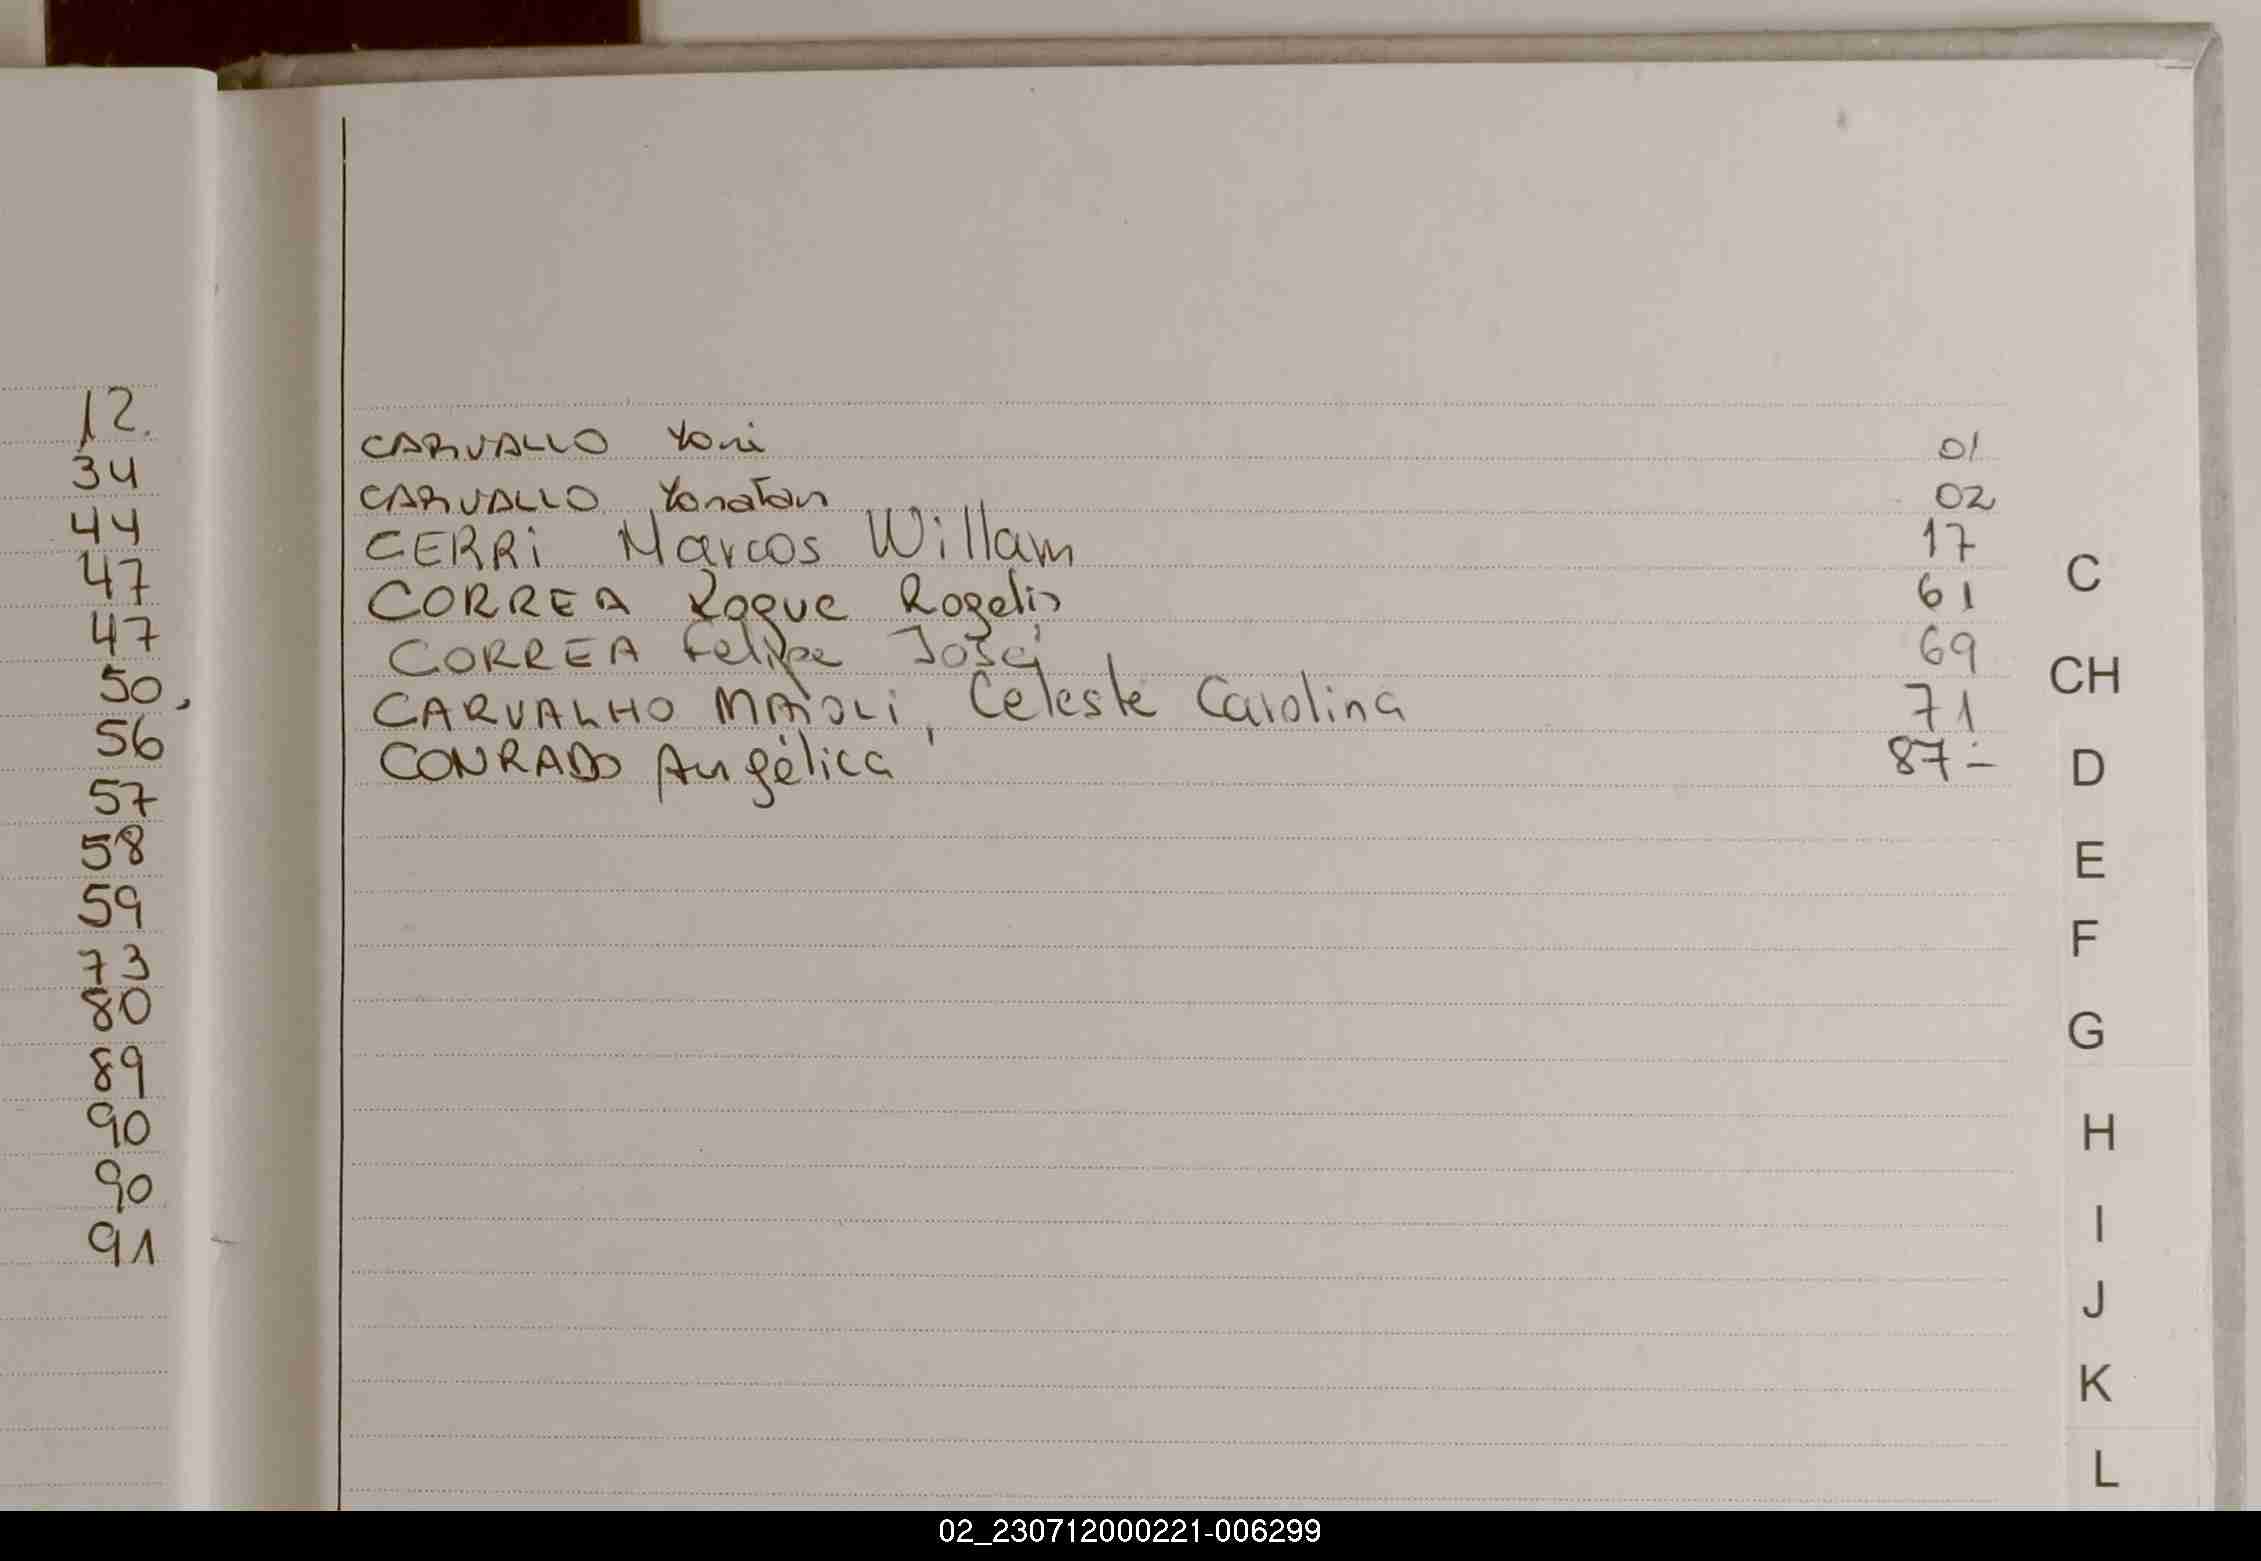 12.
34
44
47
47
50,
56
57
58
59
73
80
89
90
90
91
CARVALLO Yoni 01
CARVALLO Yonatan 02
CERRi Marcos Willam 17
CORREA Roque Rogelio 61
CORREA Felipe José 69
CARVALHO MAiOLi, Celeste Carolina 71
CONRADO Angélica 87-
C
CH
D
E
F
G
H
I
J
K
L
02_230712000221-006299